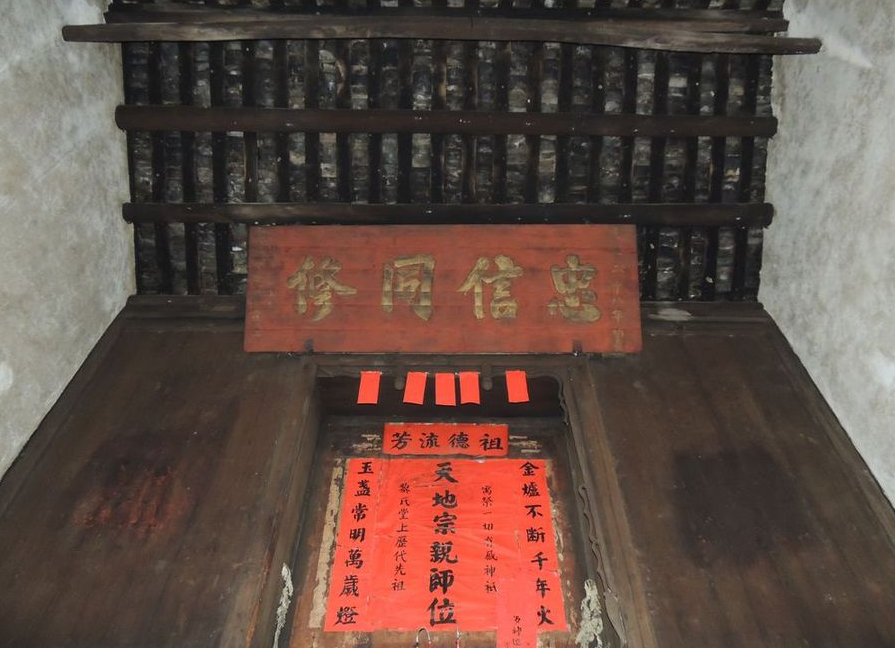 忠信同修
祖德流芳
金爐不断千年火
天地宗親師位
黎氏堂上歷代先祖
玉盞常明萬歲燈